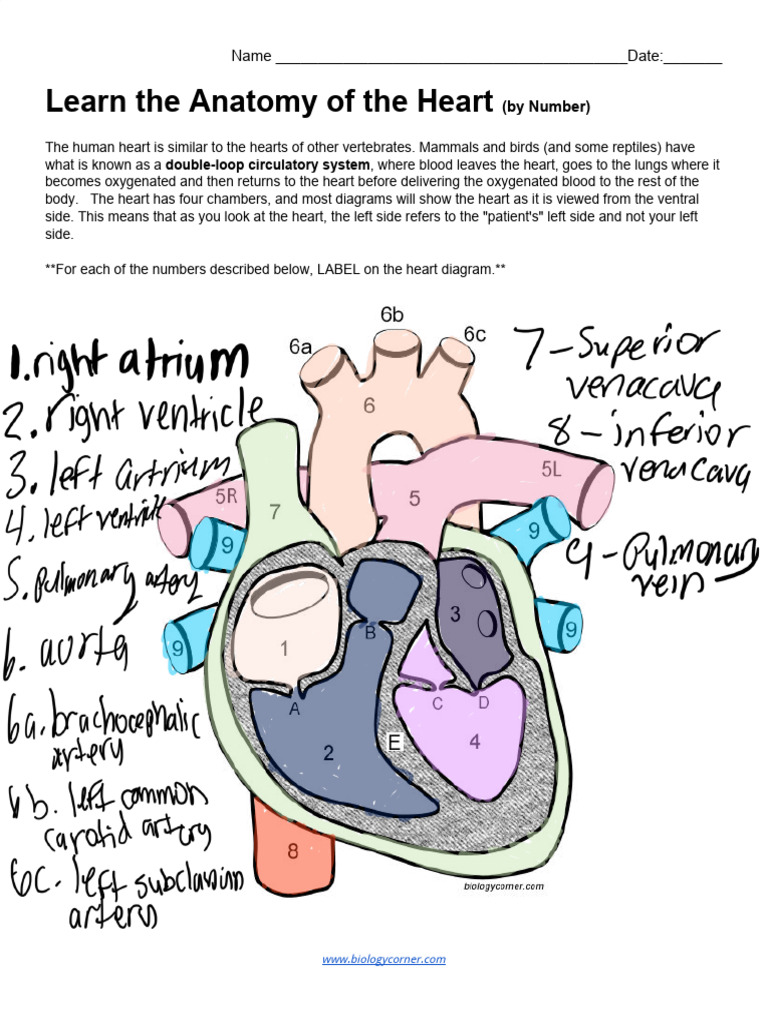 Name ________________________________________Date:_______
Learn the Anatomy of the Heart (by Number)
The human heart is similar to the hearts of other vertebrates. Mammals and birds (and some reptiles) have
what is known as a double-loop circulatory system, where blood leaves the heart, goes to the lungs where it
becomes oxygenated and then returns to the heart before delivering the oxygenated blood to the rest of the
body. The heart has four chambers, and most diagrams will show the heart as it is viewed from the ventral
side. This means that as you look at the heart, the left side refers to the "patient's" left side and not your left
side.
**For each of the numbers described below, LABEL on the heart diagram.**
1. right atrium
2. right ventricle
3. left artrium
4. left ventricle
5. pulmonary artery
6. aorta
6a. brachocephalic
artery
6b. left common
carotid artery
6c. left subclavian
artery
7 - Superior
venacava
8 - inferior
venacava
9 - Pulmonary
vein
6a
6b
6c
6
5R
5
5L
7
9
9
9
9
1
B
3
A
C
D
2
E
4
8
biologycorner.com
www.biologycorner.com